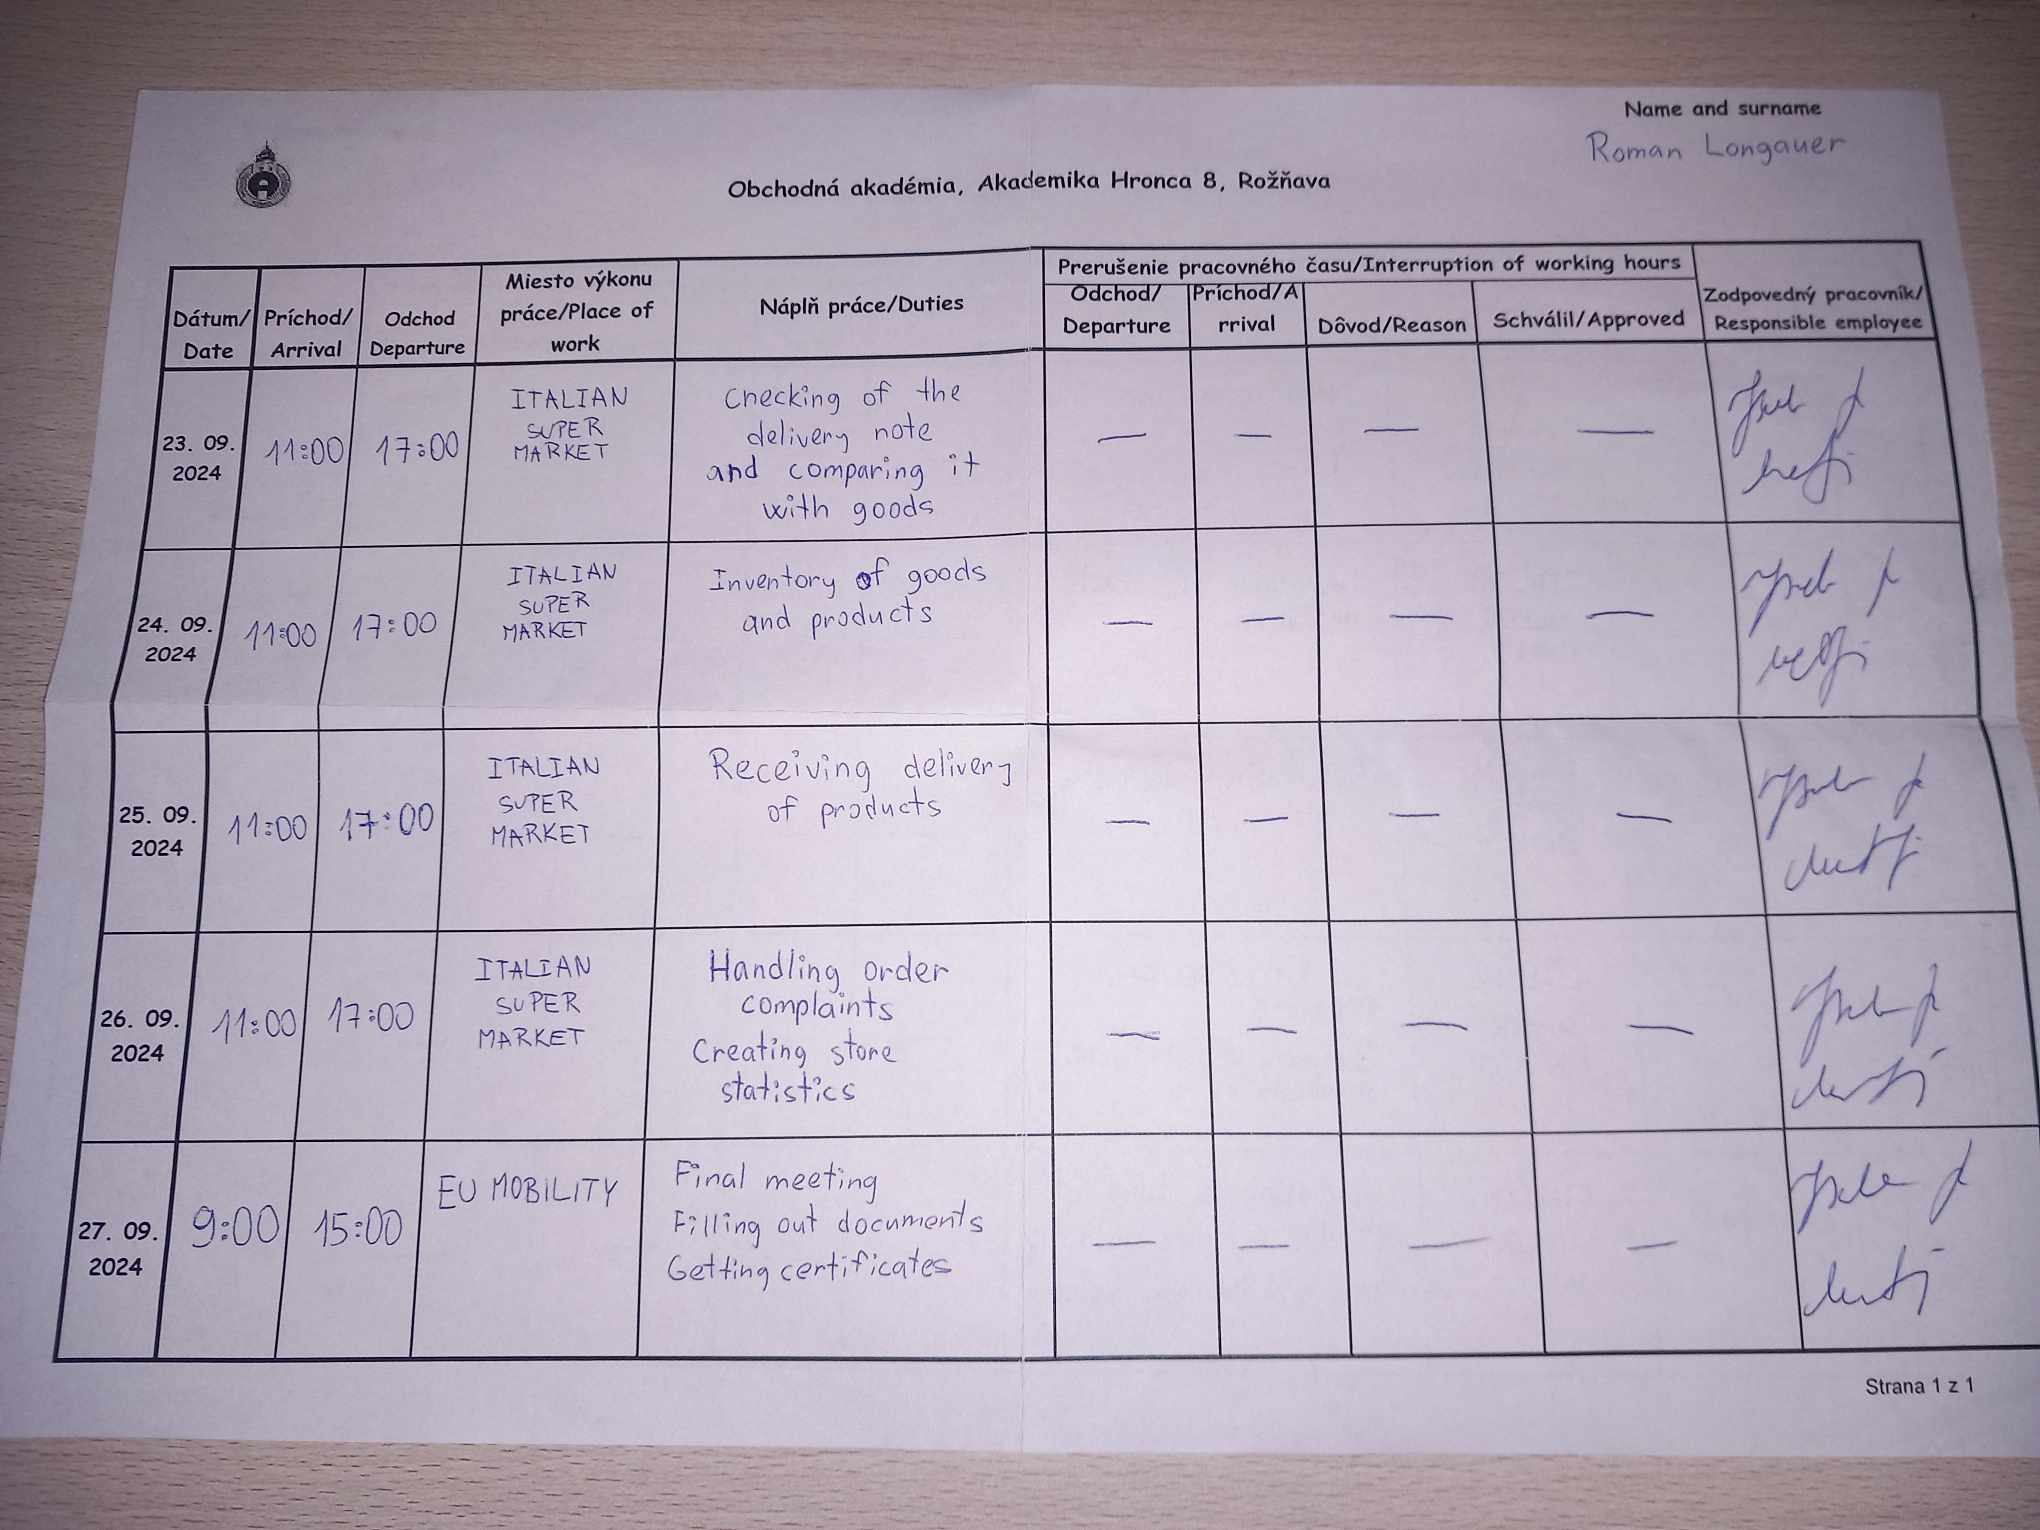 Name and surname
Roman Longauer
Obchodná akadémia, Akademika Hronca 8, Rožňava
Dátum/
Date
Príchod/
Arrival
Odchod
Departure
Miesto výkonu
práce/Place of
work
Náplň práce/Duties
Prerušenie pracovného času/Interruption of working hours
Odchod/
Departure
Príchod/A
rrival
Dôvod/Reason
Schválil/Approved
Zodpovedný pracovník/
Responsible employee
23. 09.
2024
11:00
17:00
ITALIAN
SUPER
MARKET
Checking of the
delivery note
and comparing it
with goods
—
—
—
—
24. 09.
2024
11:00
17:00
ITALIAN
SUPER
MARKET
Inventory of goods
and products
—
—
—
—
25. 09.
2024
11:00
17:00
ITALIAN
SUPER
MARKET
Receiving delivery
of products
—
—
—
—
26. 09.
2024
11:00
17:00
ITALIAN
SUPER
MARKET
Handling order
complaints
Creating store
statistics
—
—
—
—
27. 09.
2024
9:00
15:00
EU MOBILITY
Final meeting
Filling out documents
Getting certificates
—
—
—
—
Strana 1 z 1